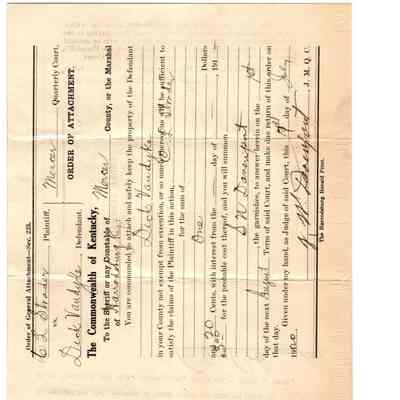 Order of General Attachment—Sec. 223.
Mercer Quarterly Court,
C L Shrader Plaintiff,
vs. ORDER OF ATTACHMENT.
Dick Vandyke Defendant.
The Commonwealth of Kentucky,
To the Sheriff or any Constable of Mercer County, or the Marshal
of Harrodsburg
You are commanded to attach and safely keep the property of the Defendant
Dick Vandyke
in your County not exempt from execution, or so much thereof as will be sufficient to
satisfy the claims of the Plaintiff in this action, C L Shrader
for the sum of
One Dollars
and 20 Cents, with interest from the day of 191
for the probable cost thereof, and you will summon
S W Davenport
the garnishee, to answer herein on the 1st
day of the next August Term of said Court, and make due return of this order on
that day.
Given under my hand, as Judge of said Court, this day of July
19
Davenport J. M. Q. C.
The Harrodsburg Herald Print.